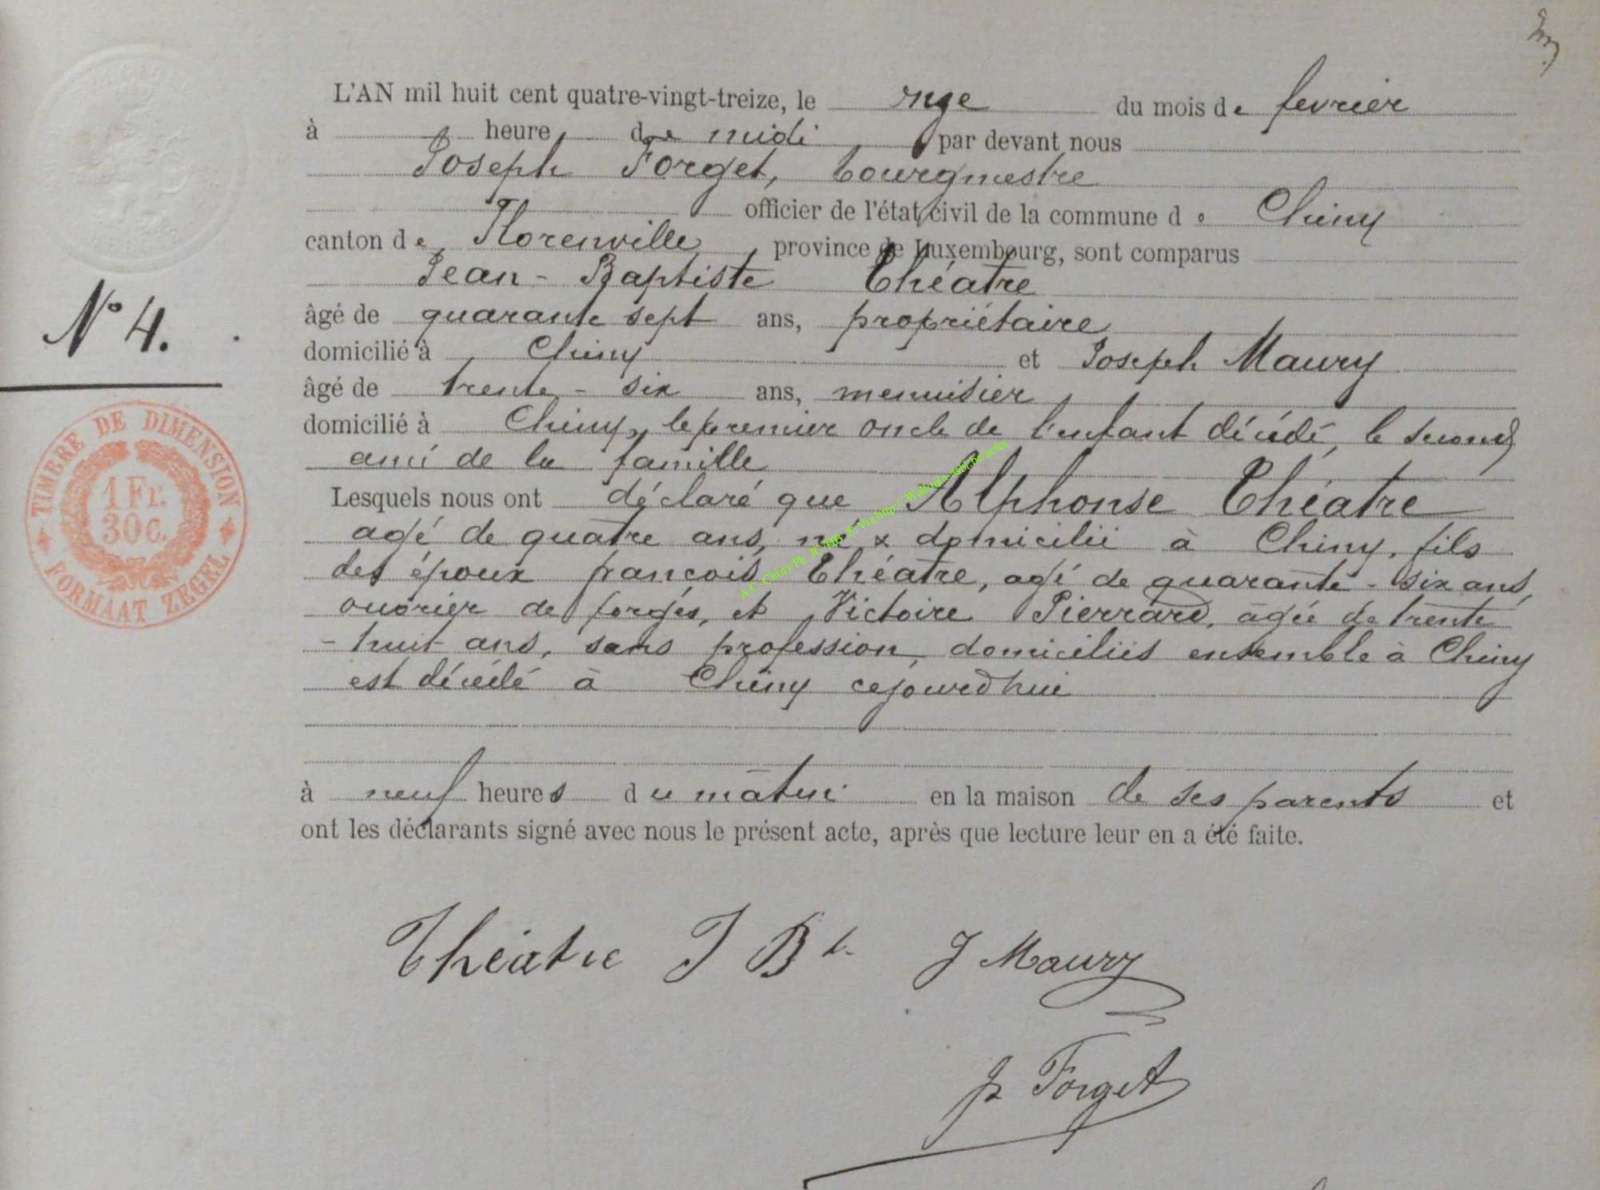 L'AN mil huit cent quatre-vingt-treize, le onze du mois de fevrier
à heure de midi par devant nous
Joseph Forget, bourgmestre
officier de l'état civil de la commune de Chiny
canton de Florenville province de Luxembourg, sont comparus
Jean-Baptiste Théatre
âgé de quarante sept ans, propriétaire
domicilié à Chiny et Joseph Maury
âgé de trente-six ans, menuisier
domicilié à Chiny, le premier oncle de l'enfant décédé, le second
ami de la famille
Lesquels nous ont déclaré que Alphonse Théatre
agé de quatre ans, né x domicilié à Chiny, fils
des époux françois Théatre, agé de quarante-six ans,
ouvrier de forges, et Victoire Pierrard, agée de trente
-huit ans, sans profession, domiciliés ensemble à Chiny
est décédé à Chiny cejourd'hui
à neuf heures du matin en la maison de ses parents et
ont les déclarants signé avec nous le présent acte, après que lecture leur en a été faite.
N° 4.
TIMBRE DE DIMENSION
1 Fr.
30 c.
FORMAAT ZEGEL
Théatre J Bte J Maury
J Forget